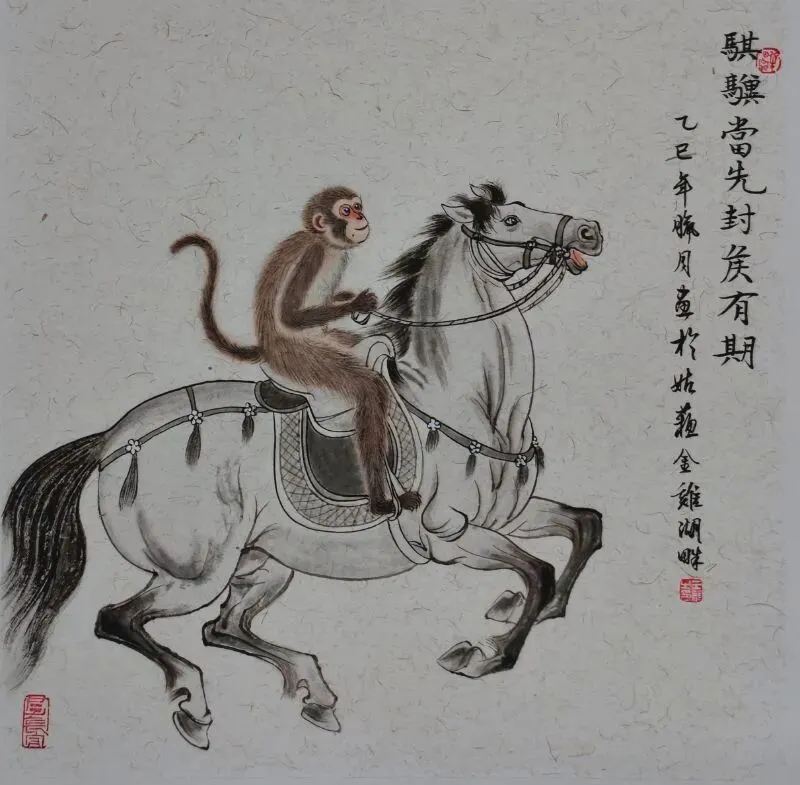 騏驥當先封侯有期
乙巳年臘月畫於姑蘇金雞湖畔